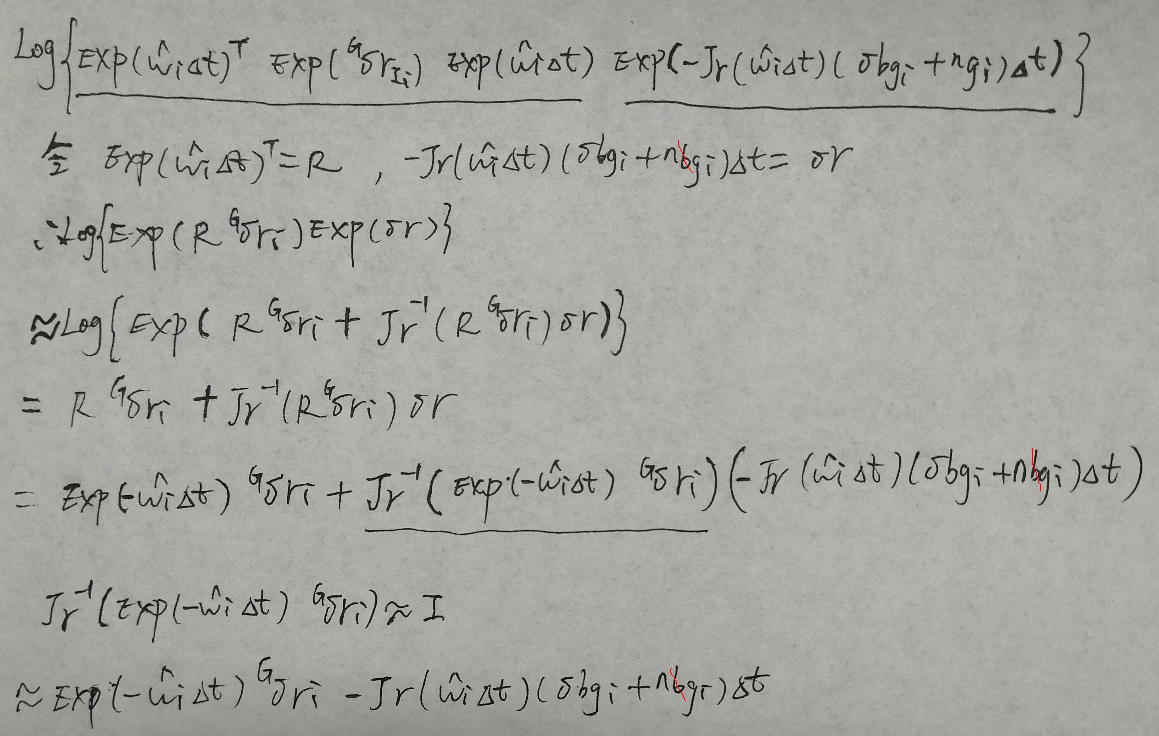 Log{Exp(ŵᵢΔt)ᵀ Exp(ᴳδr_Iᵢ) Exp(ŵᵢΔt) Exp(-Jr(ŵᵢΔt)(δbgᵢ+ngᵢ)Δt)}
令 Exp(ŵᵢΔt)ᵀ=R , -Jr(ŵᵢΔt)(δbgᵢ+nbgᵢ)Δt= δr
∴Log{Exp(R ᴳδrᵢ)Exp(δr)}
≈Log{Exp( R ᴳδrᵢ + Jr⁻¹(R ᴳδrᵢ)δr)}
= R ᴳδrᵢ + Jr⁻¹(R ᴳδrᵢ) δr
= Exp(-ŵᵢΔt) ᴳδrᵢ + Jr⁻¹(Exp(-ŵᵢΔt) ᴳδrᵢ)(-Jr(ŵᵢΔt)(δbgᵢ+nbgᵢ)Δt)
Jr⁻¹(Exp(-ŵᵢΔt) ᴳδrᵢ)≈I
≈Exp(-ŵᵢΔt) ᴳδrᵢ -Jr(ŵᵢΔt)(δbgᵢ+nbgᵢ)Δt